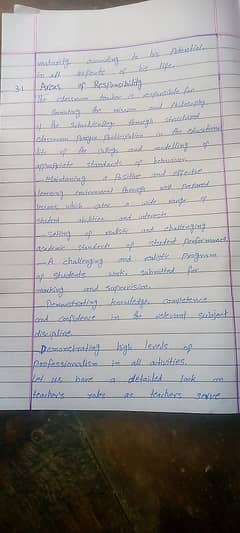 maturity according to his potential,
in all aspects of his life.
3.1 Areas of Responsibility
The classroom teacher is responsible for
Promoting the mission and philosophy
of the through structured
classroom participation in the educational
life of the college and modelling of
appropriate standards of behaviour.
- Maintaining a positive and effective
learning environment through well prepared
lessons which cater a wide range of
student abilities and interests.
- Setting of realistic and challenging
academic standards of student performance.
- A challenging and realistic program
of students work, submitted for
marking and supervision.
- Demonstrating knowledge, competence
and confidence in the relevant subject
discipline.
Demonstrating high levels of
professionalism in all activities.
Let us have a detailed look on
teacher's roles as teachers serve